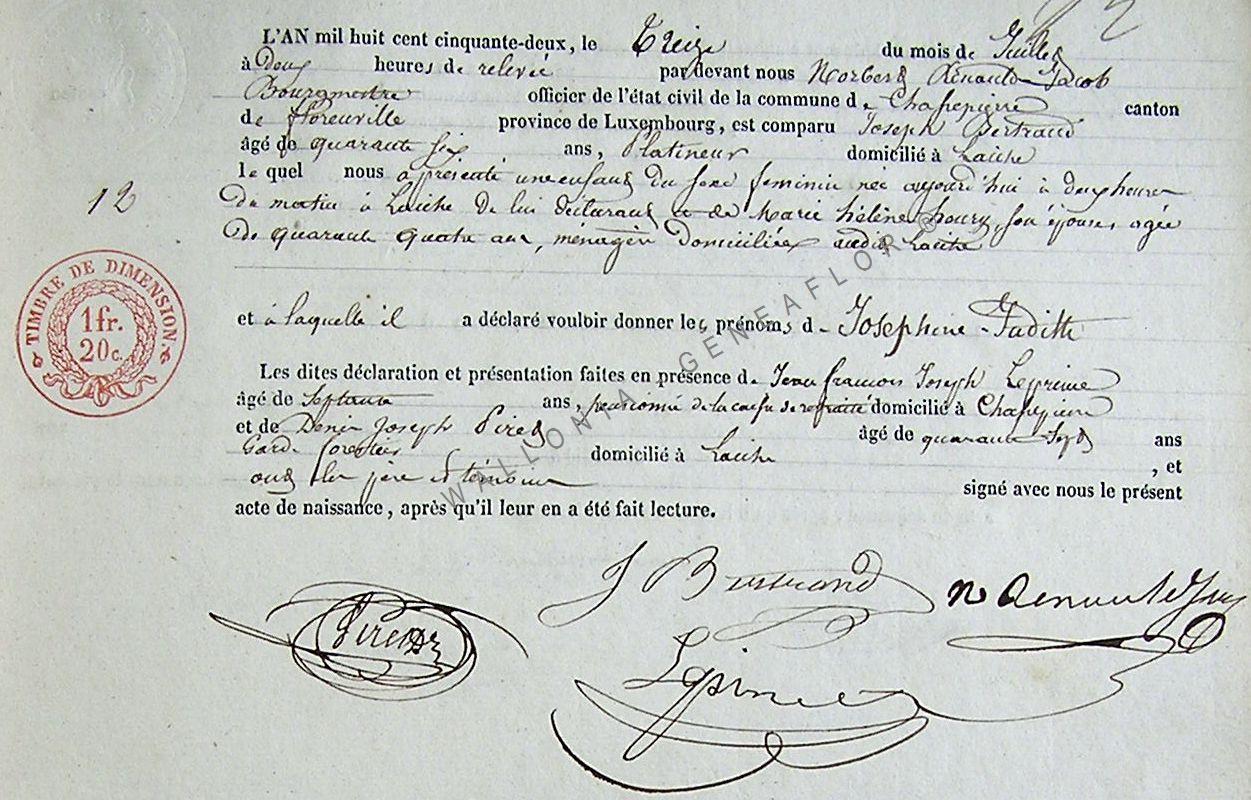 L'AN mil huit cent cinquante-deux, le treize du mois de Juillet
à Deux heures de relevée par devant nous Norbert Renauld-Jacob
Bourgmestre officier de l'état civil de la commune de Chassepierre canton
de florenville province de Luxembourg, est comparu Joseph Bertrand
âgé de quarante six ans, Platineur domicilié à Laiche
le quel nous a présenté une enfant du sexe feminin née aujourd'hui à deux heures
du matin à Laiche de lui déclarant et de Marie hélène houry, son épouse agée
de quarante quatre ans, ménagère domiciliée audit Laiche
12
TIMBRE DE DIMENSION
1 fr.
20 c.
et à laquelle il a déclaré vouloir donner les prénoms de Josephine-Judith
Les dites déclaration et présentation faites en présence de Jean françois Joseph Leprince
âgé de septante ans, pensionné de la caisse de retraite domicilié à Chassepierre
et de Denis Joseph Piret âgé de quarante sept ans
Garde forestier domicilié à Laiche, et
ont les père et témoins signé avec nous le présent
acte de naissance, après qu'il leur en a été fait lecture.
J Bertrand
Piret
Leprince
WALLONIA - GENEAFLOR ®